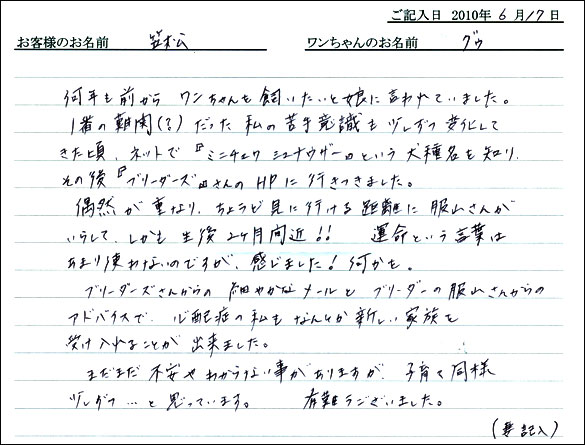 ご記入日 2010年 6月17日
お客様のお名前 笠松 ワンちゃんのお名前 グゥ
何年も前から ワンちゃんを飼いたいと娘に言われていました。
1番の難関(?)だった 私の苦手意識も 少しずつ 変化して
きた頃、ネットで『ミニチュワ シュナウザー』という 犬種名を知り、
その後『ブリーダーズ』さんの HPに行きつきました。
偶然が重なり、ちょうど見に行ける距離に服山さんが
いらして、しかも 生後2ヶ月間近!! 運命という言葉は
あまり使わないのですが、感じました!何かを。
ブリーダーズさんからの 細やかなメールと ブリーダーの服山さんからの
アドバイスで、心配症の私も なんとか 新しい家族を
受け入れることが 出来ました。
まだまだ 不安や わからない事がありますが、子育て同様
少しずつ…と 思っています。 有難うございました。
(妻 記入)